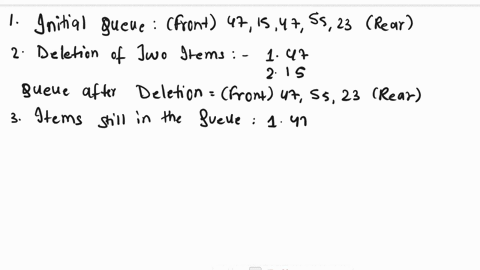 1. Initial Queue : (Front) 47, 15, 47, 55, 23 (Rear)
2. Deletion of Two Items :- 1. 47
2. 15
Queue after Deletion = (Front) 47, 55, 23 (Rear)
3. Items still in the Queue : 1. 47